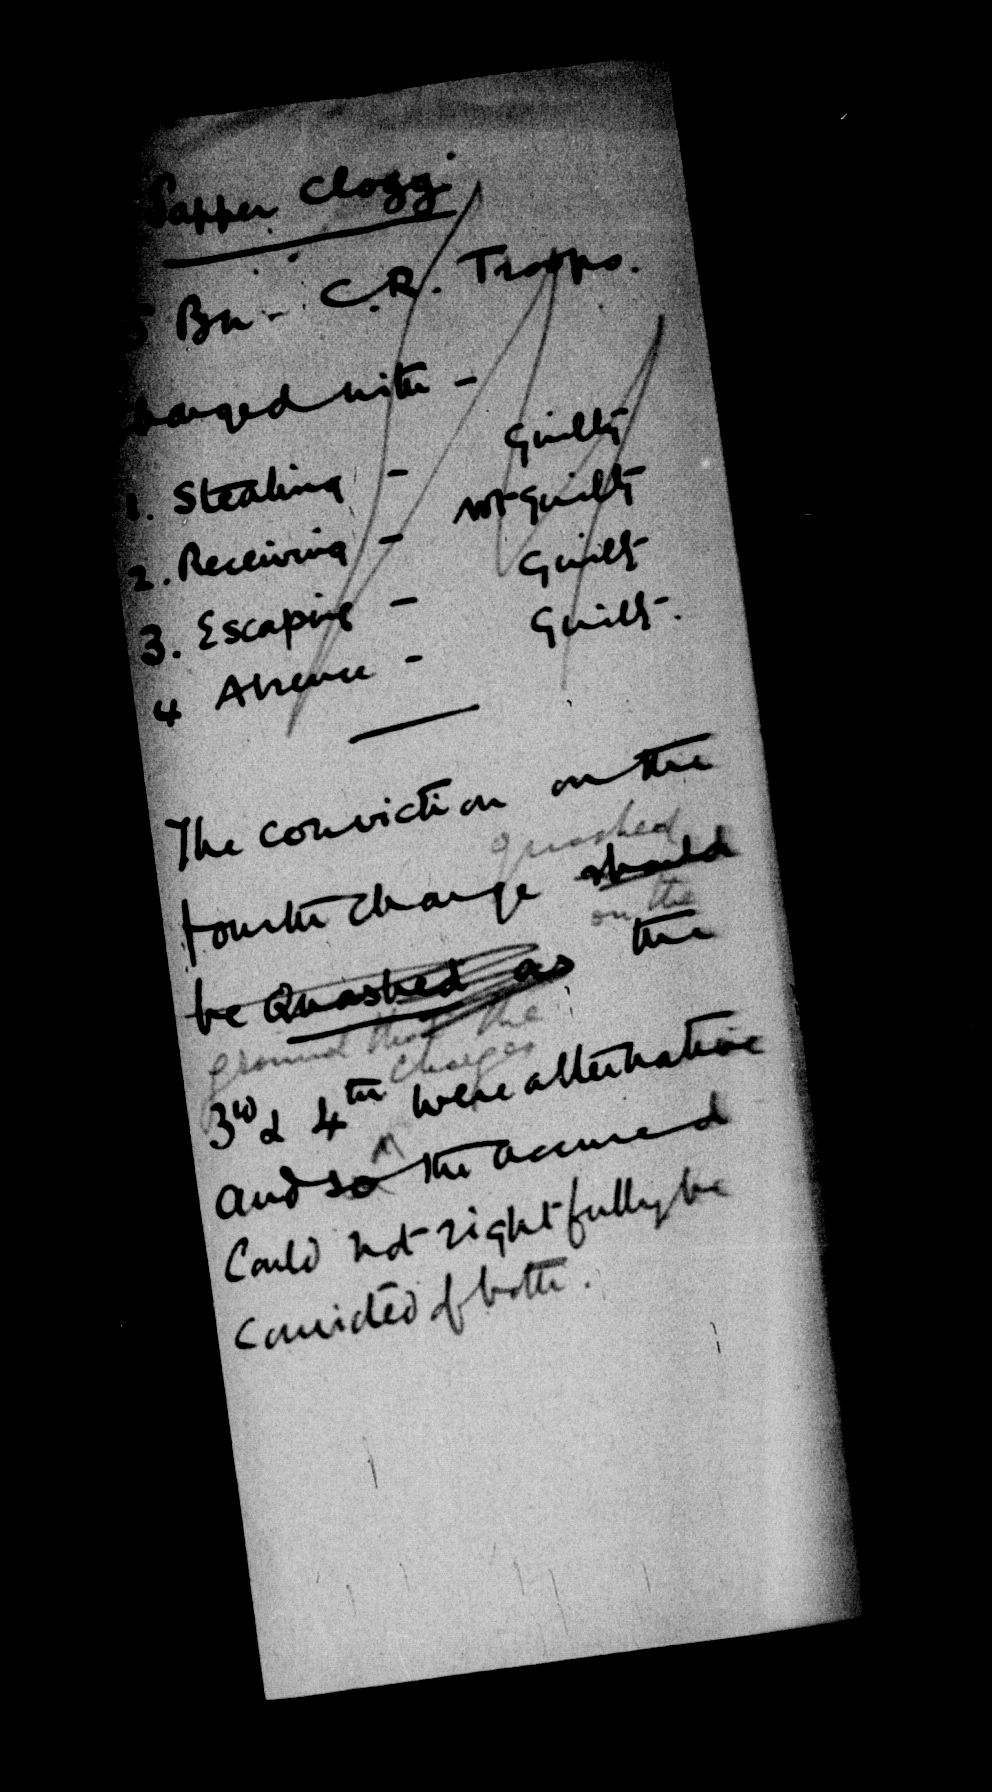 Sapper Clogg.
5 Bn - C.R. Troops.
charged with -
1. Stealing - Guilty
2. Receiving - Not Guilty
3. Escaping - Guilty
4 Absence - Guilty.
The conviction on the
quashed
fourth charge should
on the
be Quashed as the
ground that the
charges
3rd & 4th were alternative
and so the accused
Could not rightfully be
Convicted of both.